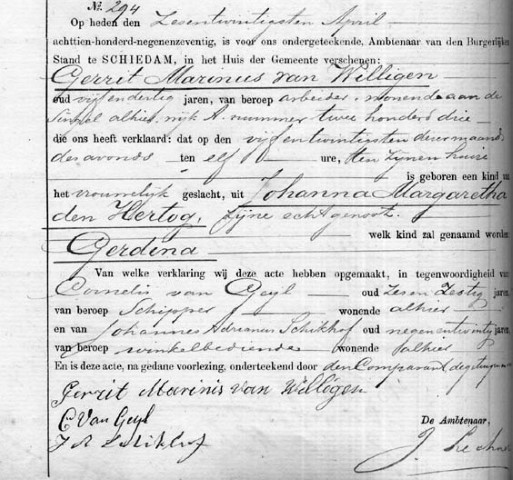 No. 294
Op heden den Zesentwintigsten April
achttien-honderd-negenenzeventig, is voor ons ondergeteekende, Ambtenaar van den Burgerlijken
Stand te SCHIEDAM, in het Huis der Gemeente verschenen:
Gerrit Marinus van Willigen
oud vijfendertig jaren, van beroep arbeider, wonende aan de
Singel alhier, wijk A. nummer twee honderd drie
die ons heeft verklaard: dat op den vijfentwintigsten dezer maand
des avonds ten elf ure, ten zijnen huize
is geboren een kind van
het vrouwelijk geslacht, uit Johanna Margaretha
den Hertog, zijne echtgenoot.
welk kind zal genaamd worden
Gerdina
Van welke verklaring wij deze acte hebben opgemaakt, in tegenwoordigheid van
Cornelis van Geyl oud Zesen Zestig jaren,
van beroep Schipper wonende alhier
en van Johannes Adrianus Schikhof oud negenentwintig jaren,
van beroep winkelbediende wonende alhier
En is deze acte, na gedane voorlezing, onderteekend door den Comparant de getuigen
Gerrit Marinis van Willigen
C Van Geyl
De Ambtenaar,
J A Schikhof